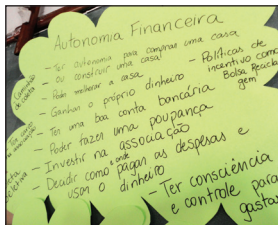 Autonomia Financeira
- Ter autonomia para comprar uma casa
ou construir uma casa!
- Poder melhorar a casa
- Ganhar o próprio dinheiro
- Ter uma boa conta bancária
- Poder fazer uma poupança
- Investir na associação
- Decidir como e onde pagar as despesas e
usar o dinheiro
- Políticas de
incentivo como
Bolsa Recicla
gem
- Ter consciência
e controle para
gastos
Caminhão
de coleta